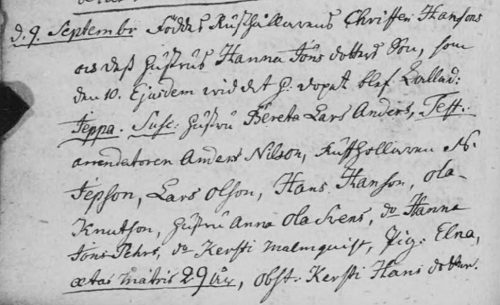 d. 9. Septembr. Föddes Rusthållarens Christen Hansons
och dess Hustrus Hanna Jöns dotters Son, som
den 10. Ejusdem wid det H: dopet blef kallad:
Jeppa. Susc: Hustru Bereta Lars Anders, Test.
Arrendatoren Anders Nilson, Rusthollaren N.
Jepson, Lars Olson, Hans Hanson, Ola
Knutson, Hustru Anna Ola Svens, do Hanna
Jöns Pehrs, do Kersti Malmquist, Pig: Elna,
ætas matris 29 åhr, obst: Kersti Hans dotter.